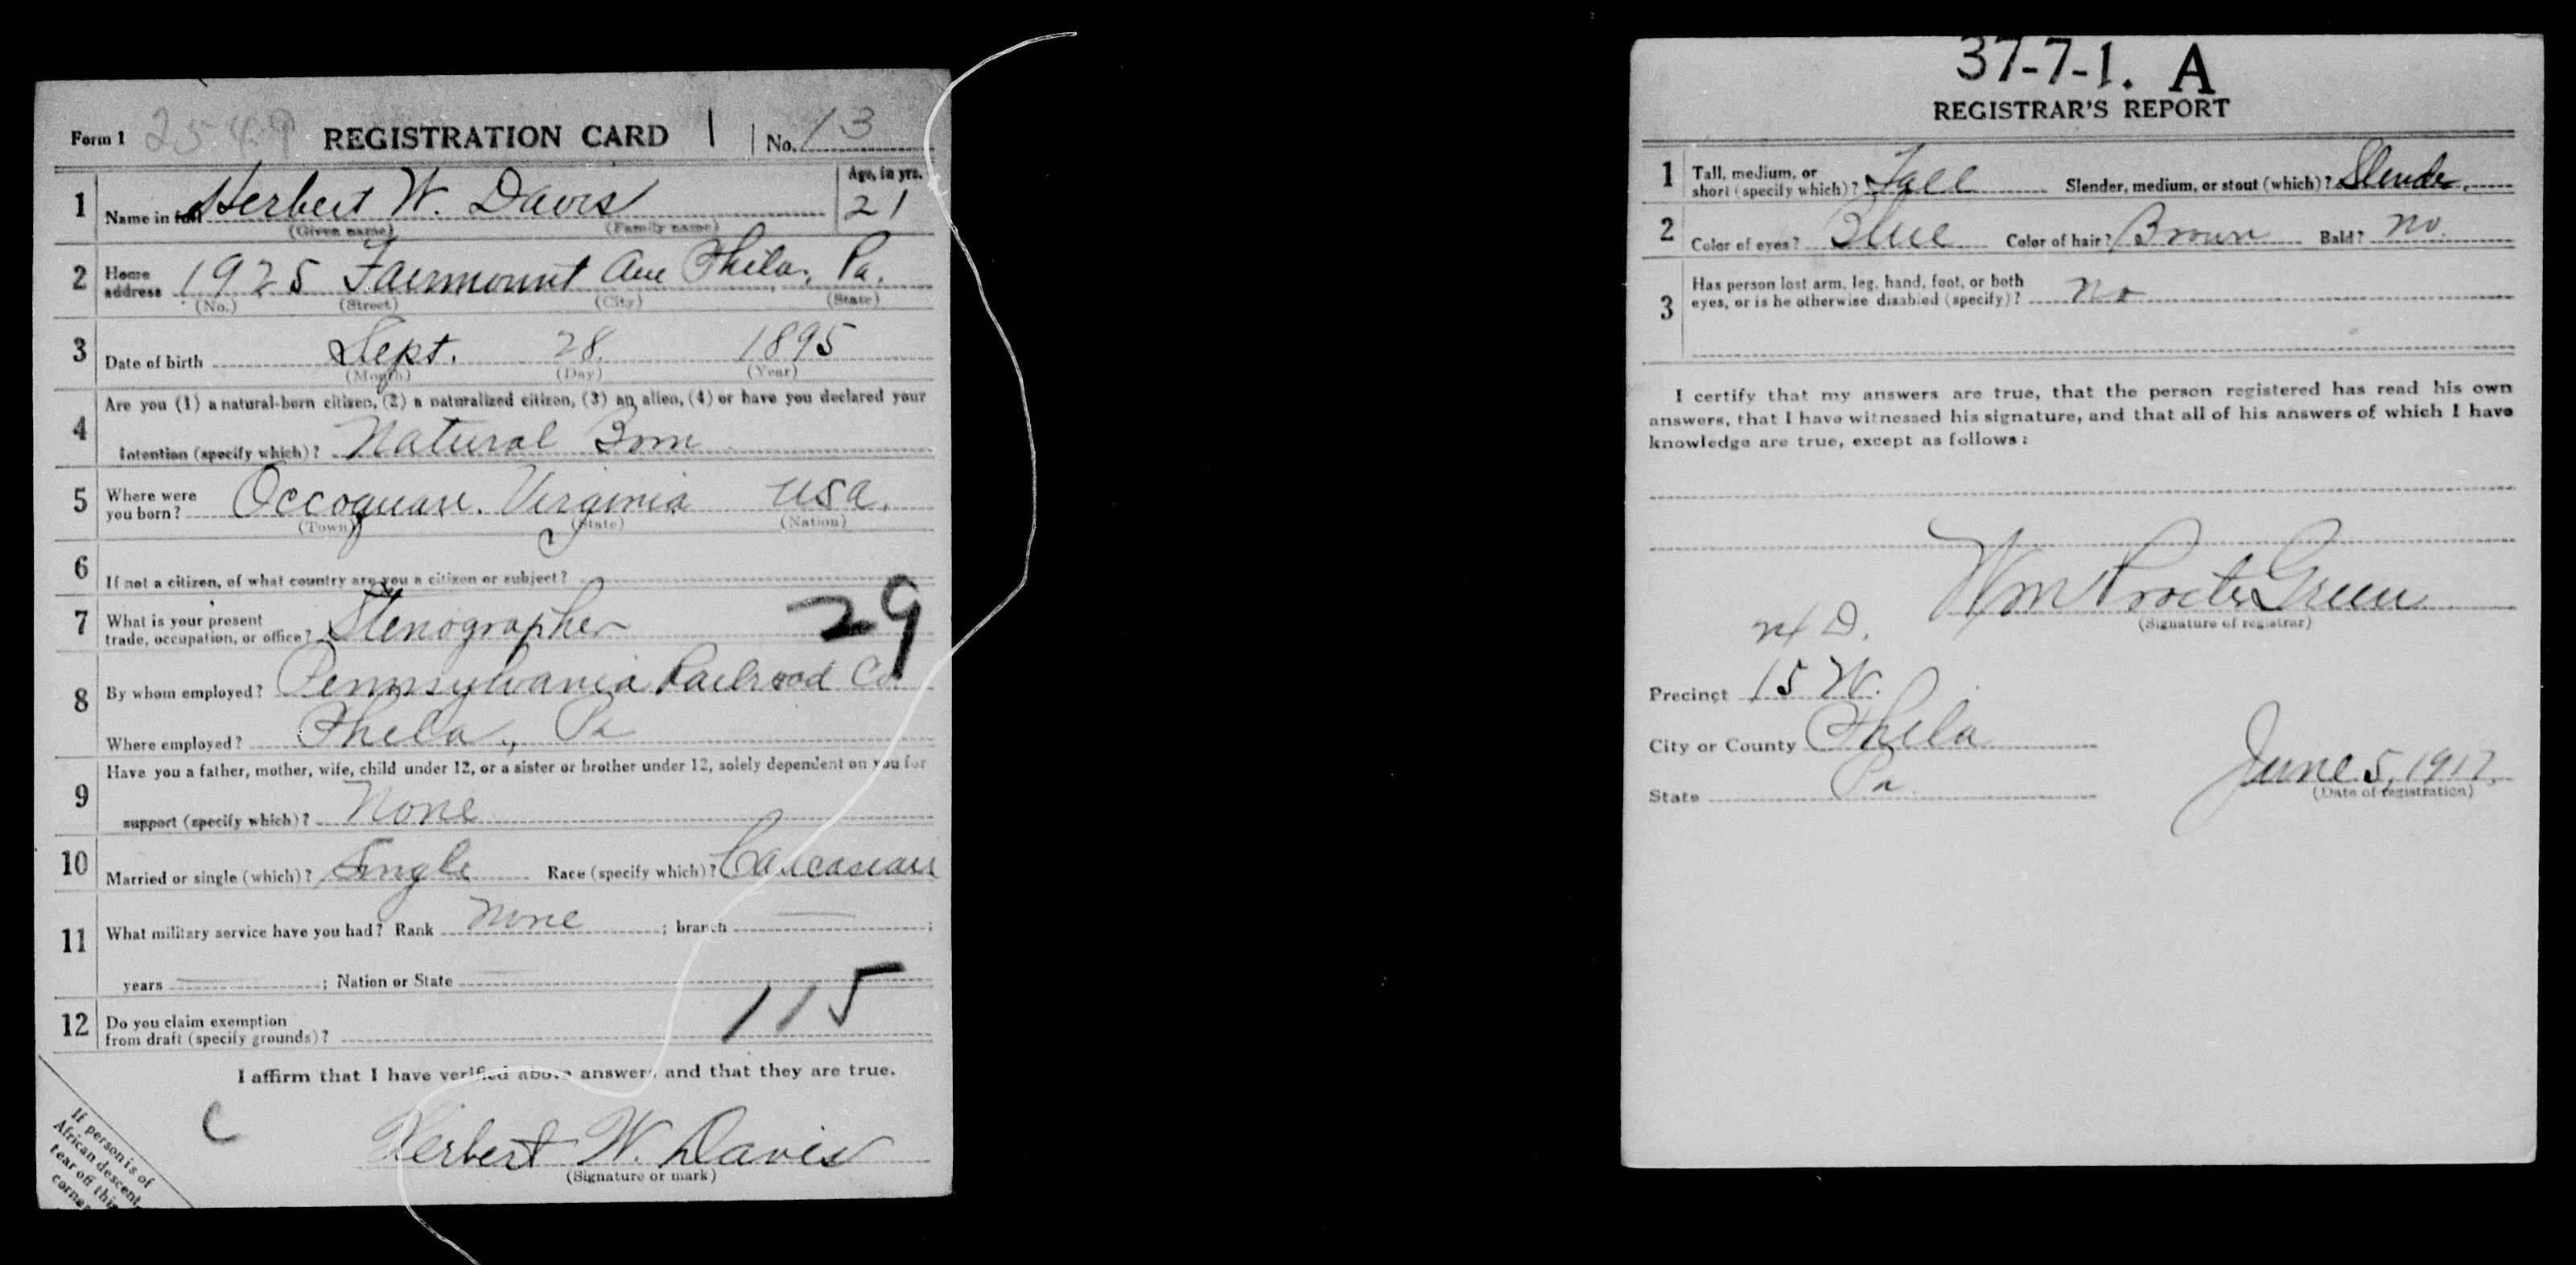 Form 1 2549 REGISTRATION CARD 1 No. 13
1 Name in full Herbert W. Davis Age, in yrs. 21
(Given name) (Family name)
2 Home address 1925 Fairmount Ave Phila., Pa.
(No.) (Street) (City) (State)
3 Date of birth Sept. 28. 1895
(Month) (Day) (Year)
4 Are you (1) a natural-born citizen, (2) a naturalized citizen, (3) an alien, (4) or have you declared your
intention (specify which)? Natural Born
5 Where were you born? Occoquan. Virginia USA.
(Town) (State) (Nation)
6 If not a citizen, of what country are you a citizen or subject?
7 What is your present trade, occupation, or office? Stenographer 29
8 By whom employed? Pennsylvania Railroad Co.
Where employed? Phila., Pa
9 Have you a father, mother, wife, child under 12, or a sister or brother under 12, solely dependent on you for
support (specify which)? None
10 Married or single (which)? Single Race (specify which)? Caucasian
11 What military service have you had? Rank None ; branch — ;
years — ; Nation or State —
12 Do you claim exemption from draft (specify grounds)? 115
I affirm that I have verified above answers and that they are true.
C
Herbert W. Davis
(Signature or mark)
If person is of
African descent
tear off this
corner
37-7-1. A
REGISTRAR'S REPORT
1 Tall, medium, or short (specify which)? Tall Slender, medium, or stout (which)? Slender
2 Color of eyes? Blue Color of hair? Brown Bald? No.
3 Has person lost arm, leg, hand, foot, or both
eyes, or is he otherwise disabled (specify)? No
I certify that my answers are true, that the person registered has read his own
answers, that I have witnessed his signature, and that all of his answers of which I have
knowledge are true, except as follows:
Wm Procter Green
(Signature of registrar)
Precinct 15 W.
City or County Phila
State Pa
June 5, 1917.
(Date of registration)